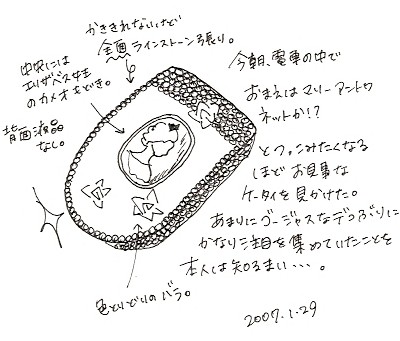 かききれないけど
全面ラインストーン張り。
中央には
エリザベス女王
のカメオもどき。
背面液晶
なし。
色とりどりのバラ。
今朝、電車の中で
おまえはマリーアントワ
ネットか!?
とつっこみたくなる
ほどお見事な
ケータイを見かけた。
あまりにゴージャスなデコぶりに
かなり注目を集めていたことを
本人は知るまい・・・。
2007.1.29